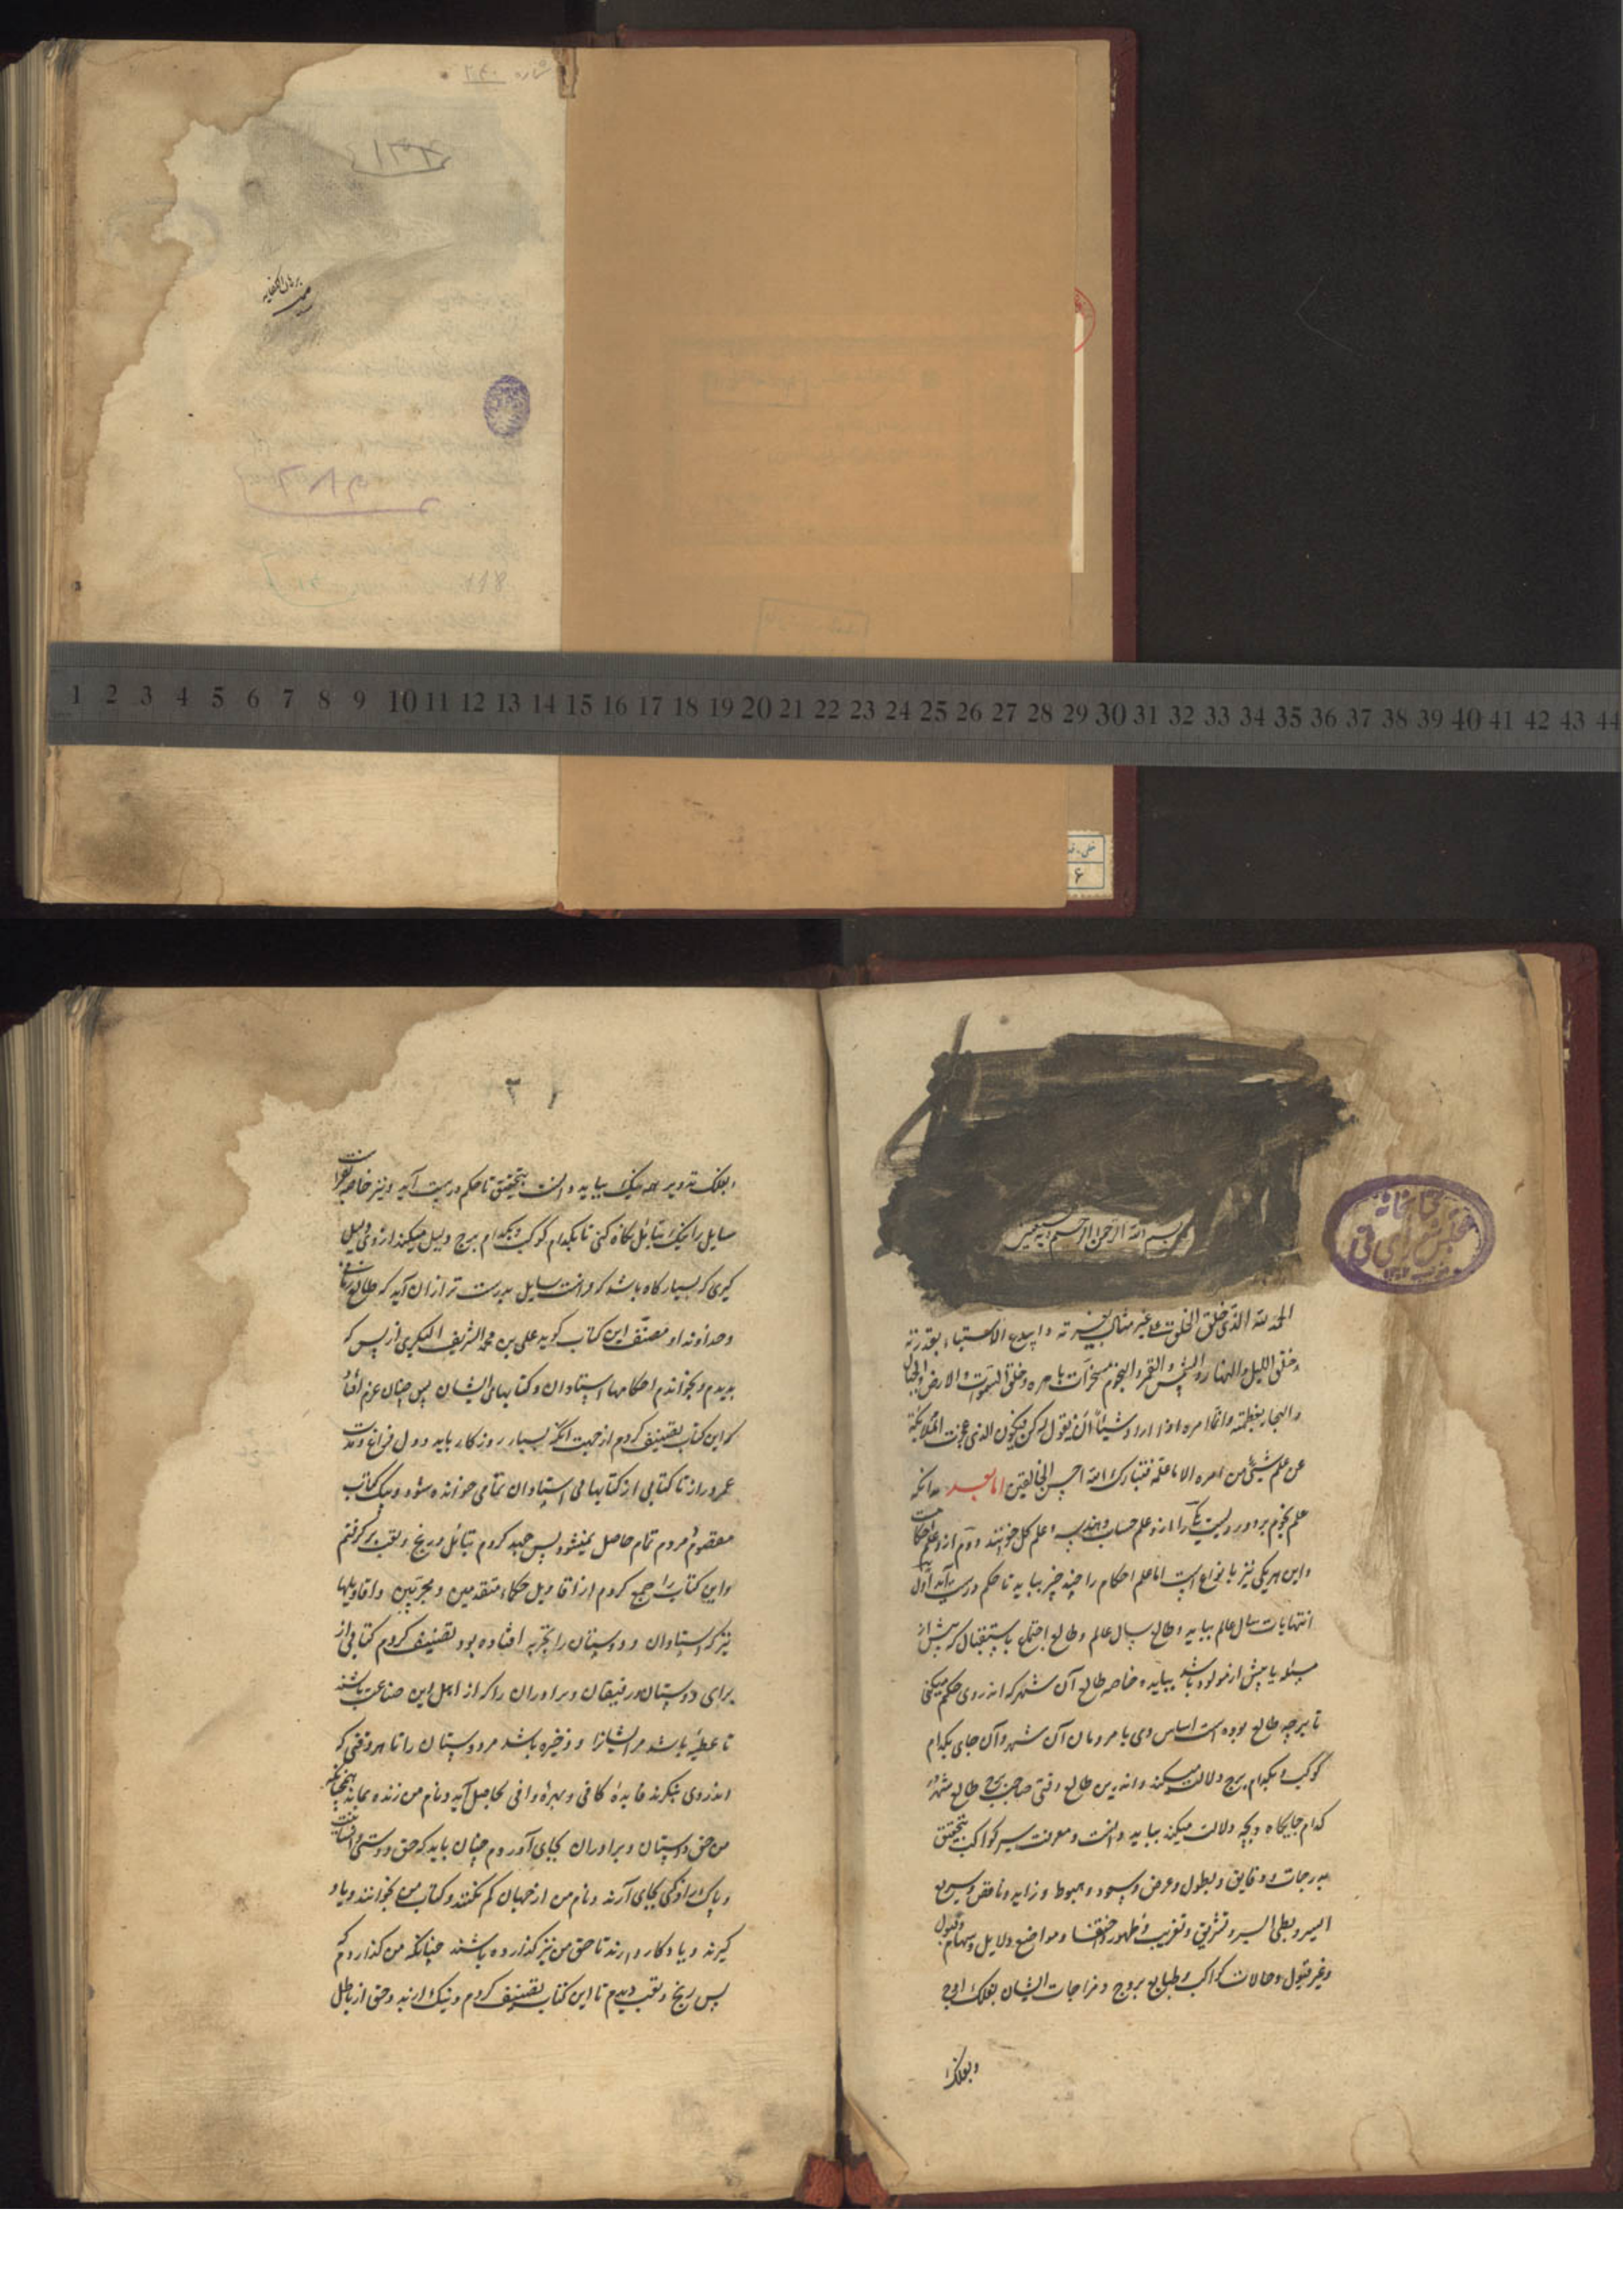 برهان الکفایه
118
1 2 3 4 5 6 7 8 9 10 11 12 13 14 15 16 17 18 19 20 21 22 23 24 25 26 27 28 29 30 31 32 33 34 35 36 37 38 39 40 41 42 43 44
خطی
۶
بسم الله الرحمن الرحیم و به نستعین
کتابخانه
مجلس شورای ملی
الحمد لله الذی خلق الخلق من غیر مثال و ابدع الاشیاء بقدرته
و خلق اللیل و النهار و الشمس و القمر و النجوم مسخرات بامره و خلق السموات و الارض و الجبال
و البحار بعظمته و انما امره اذا اراد شیئا ان نقول له کن فیکون الذی عجزت الملائکة
عن علم شیئی من امره الا ما علمه فتبارک الله احسن الخالقین اما بعد بدانکه
علم نجوم بر دو رویست یکی را از و علم حساب و هندسه و علم کل خوانند و دوم از و علم احکامست
و این هر یکی نیز بانواع است اما علم احکام را چند چیز بباید تا حکم درست آید اول
انتهایات سال عالم بباید و طالع سال عالم و طالع اجتماع یا استقبال که پیش از
مسئله یا پیش از مولود باشد بباید و خاصه طالع آن شهر که اندر وی حکم میکنی
تا بر چه طالع بوده است اساس وی با مردمان آن شهر و آن جای بکدام
کوکب و بکدام برج دلالت میکند و اندرین طالع وقتی صاحب برج طالع شهر در
کدام جایگاه و بچه دلالت میکند بباید دانست و معرفت سیر کواکب بتحقیق
بدرجات و دقایق و بطول و عرض و صعود و هبوط و زاید و ناقص و سریع
السیر و بطی السیر و تشریق و تغریب و ظهور و اختفا و مواضع دلایل و سهام و قبول
و غیر قبول و حالات کواکب و طبایع بروج و مزاجات ایشان بفلک اوج
و بفلک
۲
و بفلک تدویر همه نیک بباید دانست بتحقیق تا حکم درست آید و نیز خاصه
سایل را نیک بتأمل نگاه کنی تا بکدام کوکب و بکدام برج دلیل میکند از وی دلیل
کیری که بسیار گاه باشد که فراست سایل بدرست تر از ان آید که طالع
و خداوند او مصنف این کتاب گوید علی بن محمد الشریف البکری از پس که
بدیدم و بخواندم احکامها استادان و کتابهای ایشان پس چنان عزم افتاد
که این کتاب تصنیف کردم از جهت آنکه بسیار روزگار باید و دل فراغ و مدت
عمر دراز تا کتابی از کتابهای استادان بتمامی خوانده شود و بیک کتاب
مقصود مردم تمام حاصل نمیشود پس جهد کردم بتأمل و رنج و تعب برگرفتم
و این کتاب را جمع کردم از اقاویل حکماء متقدمین و مجربین و اقاویلها
نیز که استادان و دوستان را بتجربه افتاده بود تصنیف کردم کتابی از
برای دوستان و رفیقان و برادران را که از اهل این صناعت باشند
تا عطیه باشد مر ایشانرا و ذخیره باشد مر دوستان را تا هر وقتی که
اندر وی بنگرند فایدهٔ کافی و بهرهٔ وافی بحاصل آید و نام من زنده بماند همچنانکه
من حق دوستان و برادران بجای آوردم چنان باید که حق دوستی و
و پاک بجای آرند و نام من از جهان کم نکنند و کتاب من بخوانند و یاد
گیرند و یادگار دارند تا حق من نیز گذارده باشند چنانکه من گذاردم که
پس رنج و تعب دیدم تا این کتاب تصنیف کردم و نیک از بد و حق از باطل